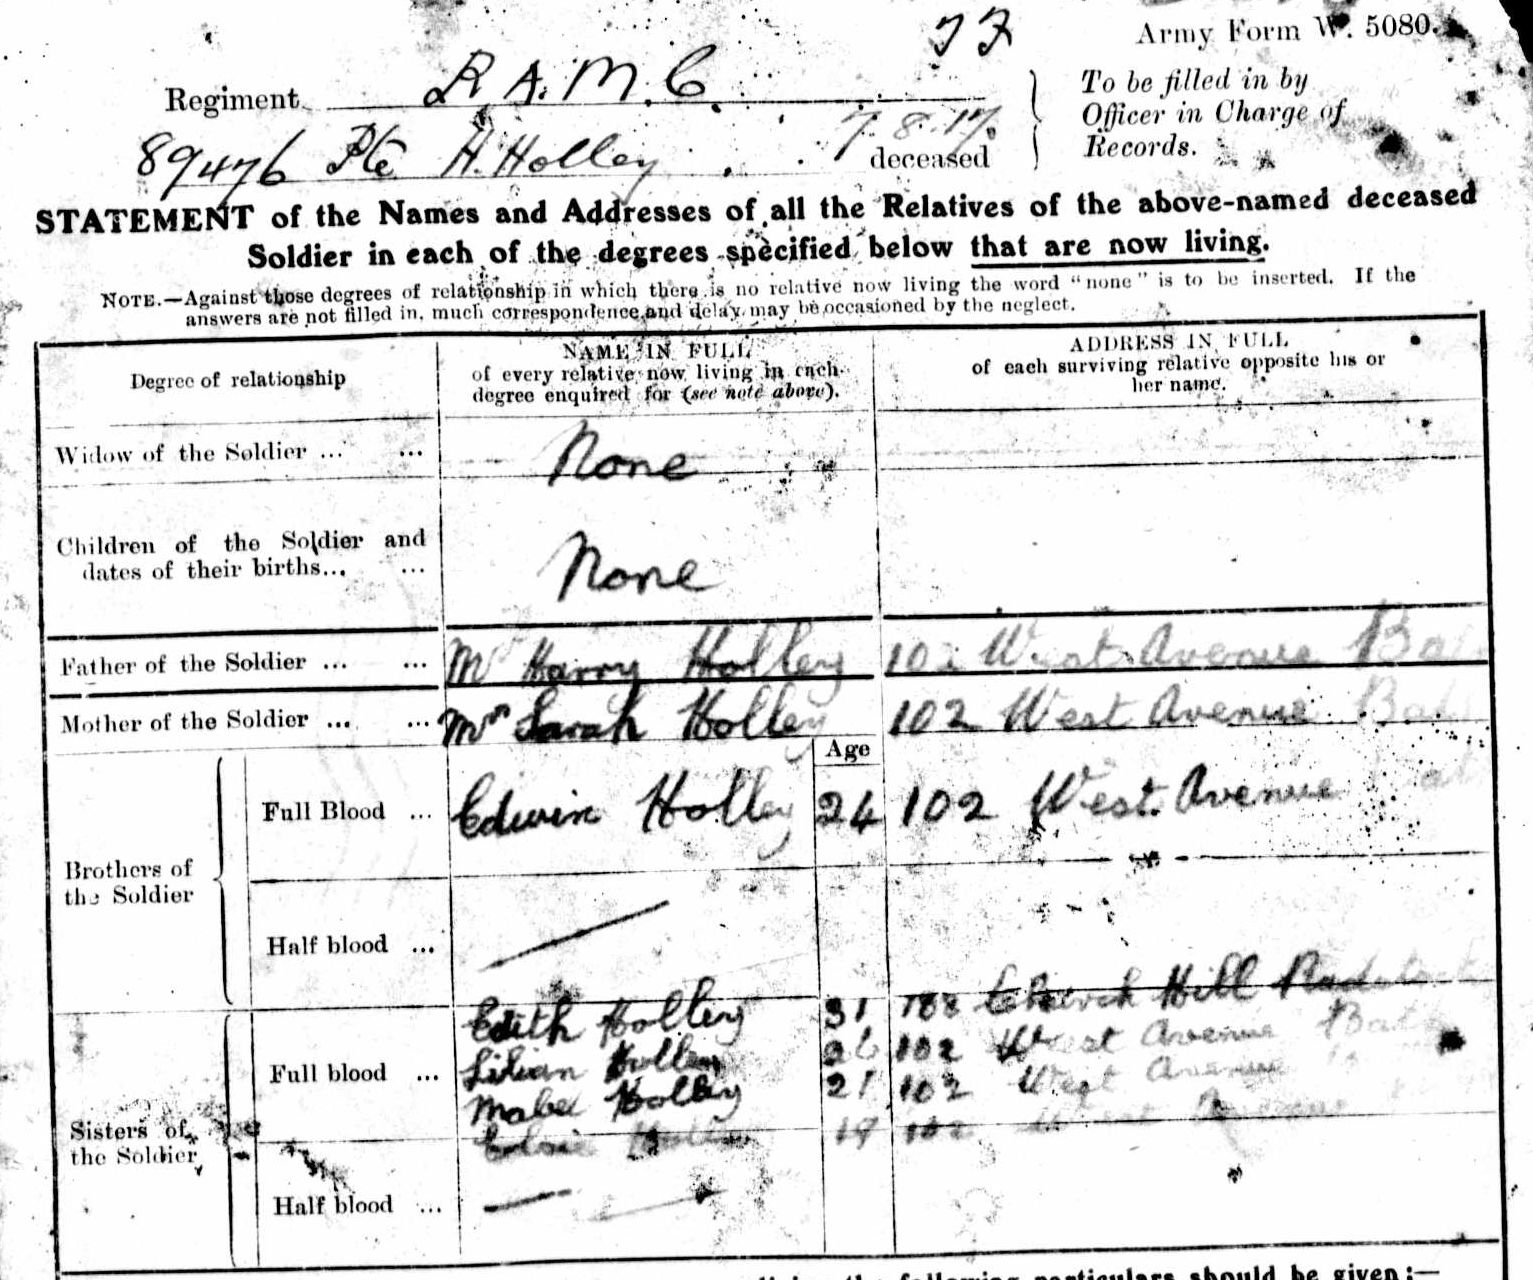 73
Army Form W. 5080.
Regiment R.A.M.C.
To be filled in by
Officer in Charge of
Records.
89476 Pte H. Holley 7.8.17. deceased
STATEMENT of the Names and Addresses of all the Relatives of the above-named deceased
Soldier in each of the degrees specified below that are now living.
NOTE.—Against those degrees of relationship in which there is no relative now living the word "none" is to be inserted. If the
answers are not filled in, much correspondence and delay may be occasioned by the neglect.
Degree of relationship
NAME IN FULL
of every relative now living in each
degree enquired for (see note above).
ADDRESS IN FULL
of each surviving relative opposite his or
her name.
Widow of the Soldier ... ... None
Children of the Soldier and
dates of their births... ... None
Father of the Soldier ... ... Mr Harry Holley 102 West Avenue
Mother of the Soldier ... ... Mrs Sarah Holley 102 West Avenue
Age
Brothers of
the Soldier
Full Blood ... Edwin Holley 24 102 West Avenue
Half blood ...
Sisters of
the Soldier
Full blood ...
Edith Holley 31 188 Church Hill
Lilian Holley 26 102 West Avenue
Mabel Holley 21 102 West Avenue
Elsie Holley 102 West Avenue
Half blood ...
the following particulars should be given:—